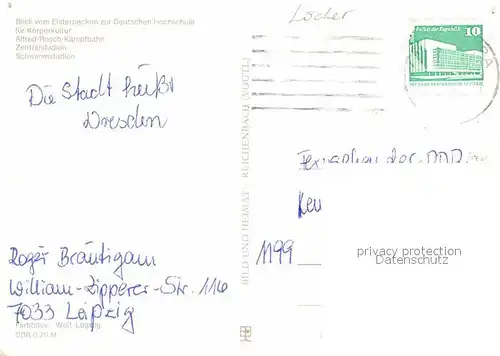 Blick vom Elsterbecken zur Deutschen Hochschule
für Körperkultur
Alfred-Rosch-Kampfbahn
Zentralstadion
Schwimmstadion
Die Stadt heißt
Dresden
Roger Bräutigam
William-Zipperer-Str. 116
7033 Leipzig
Farbfotos: Wolf Leipzig
DDR 0,20 M
BILD UND HEIMAT · REICHENBACH (VOGTL)
Locher
Palast der Republik
10
Fernsehen der DDR
1199
privacy protection
Datenschutz